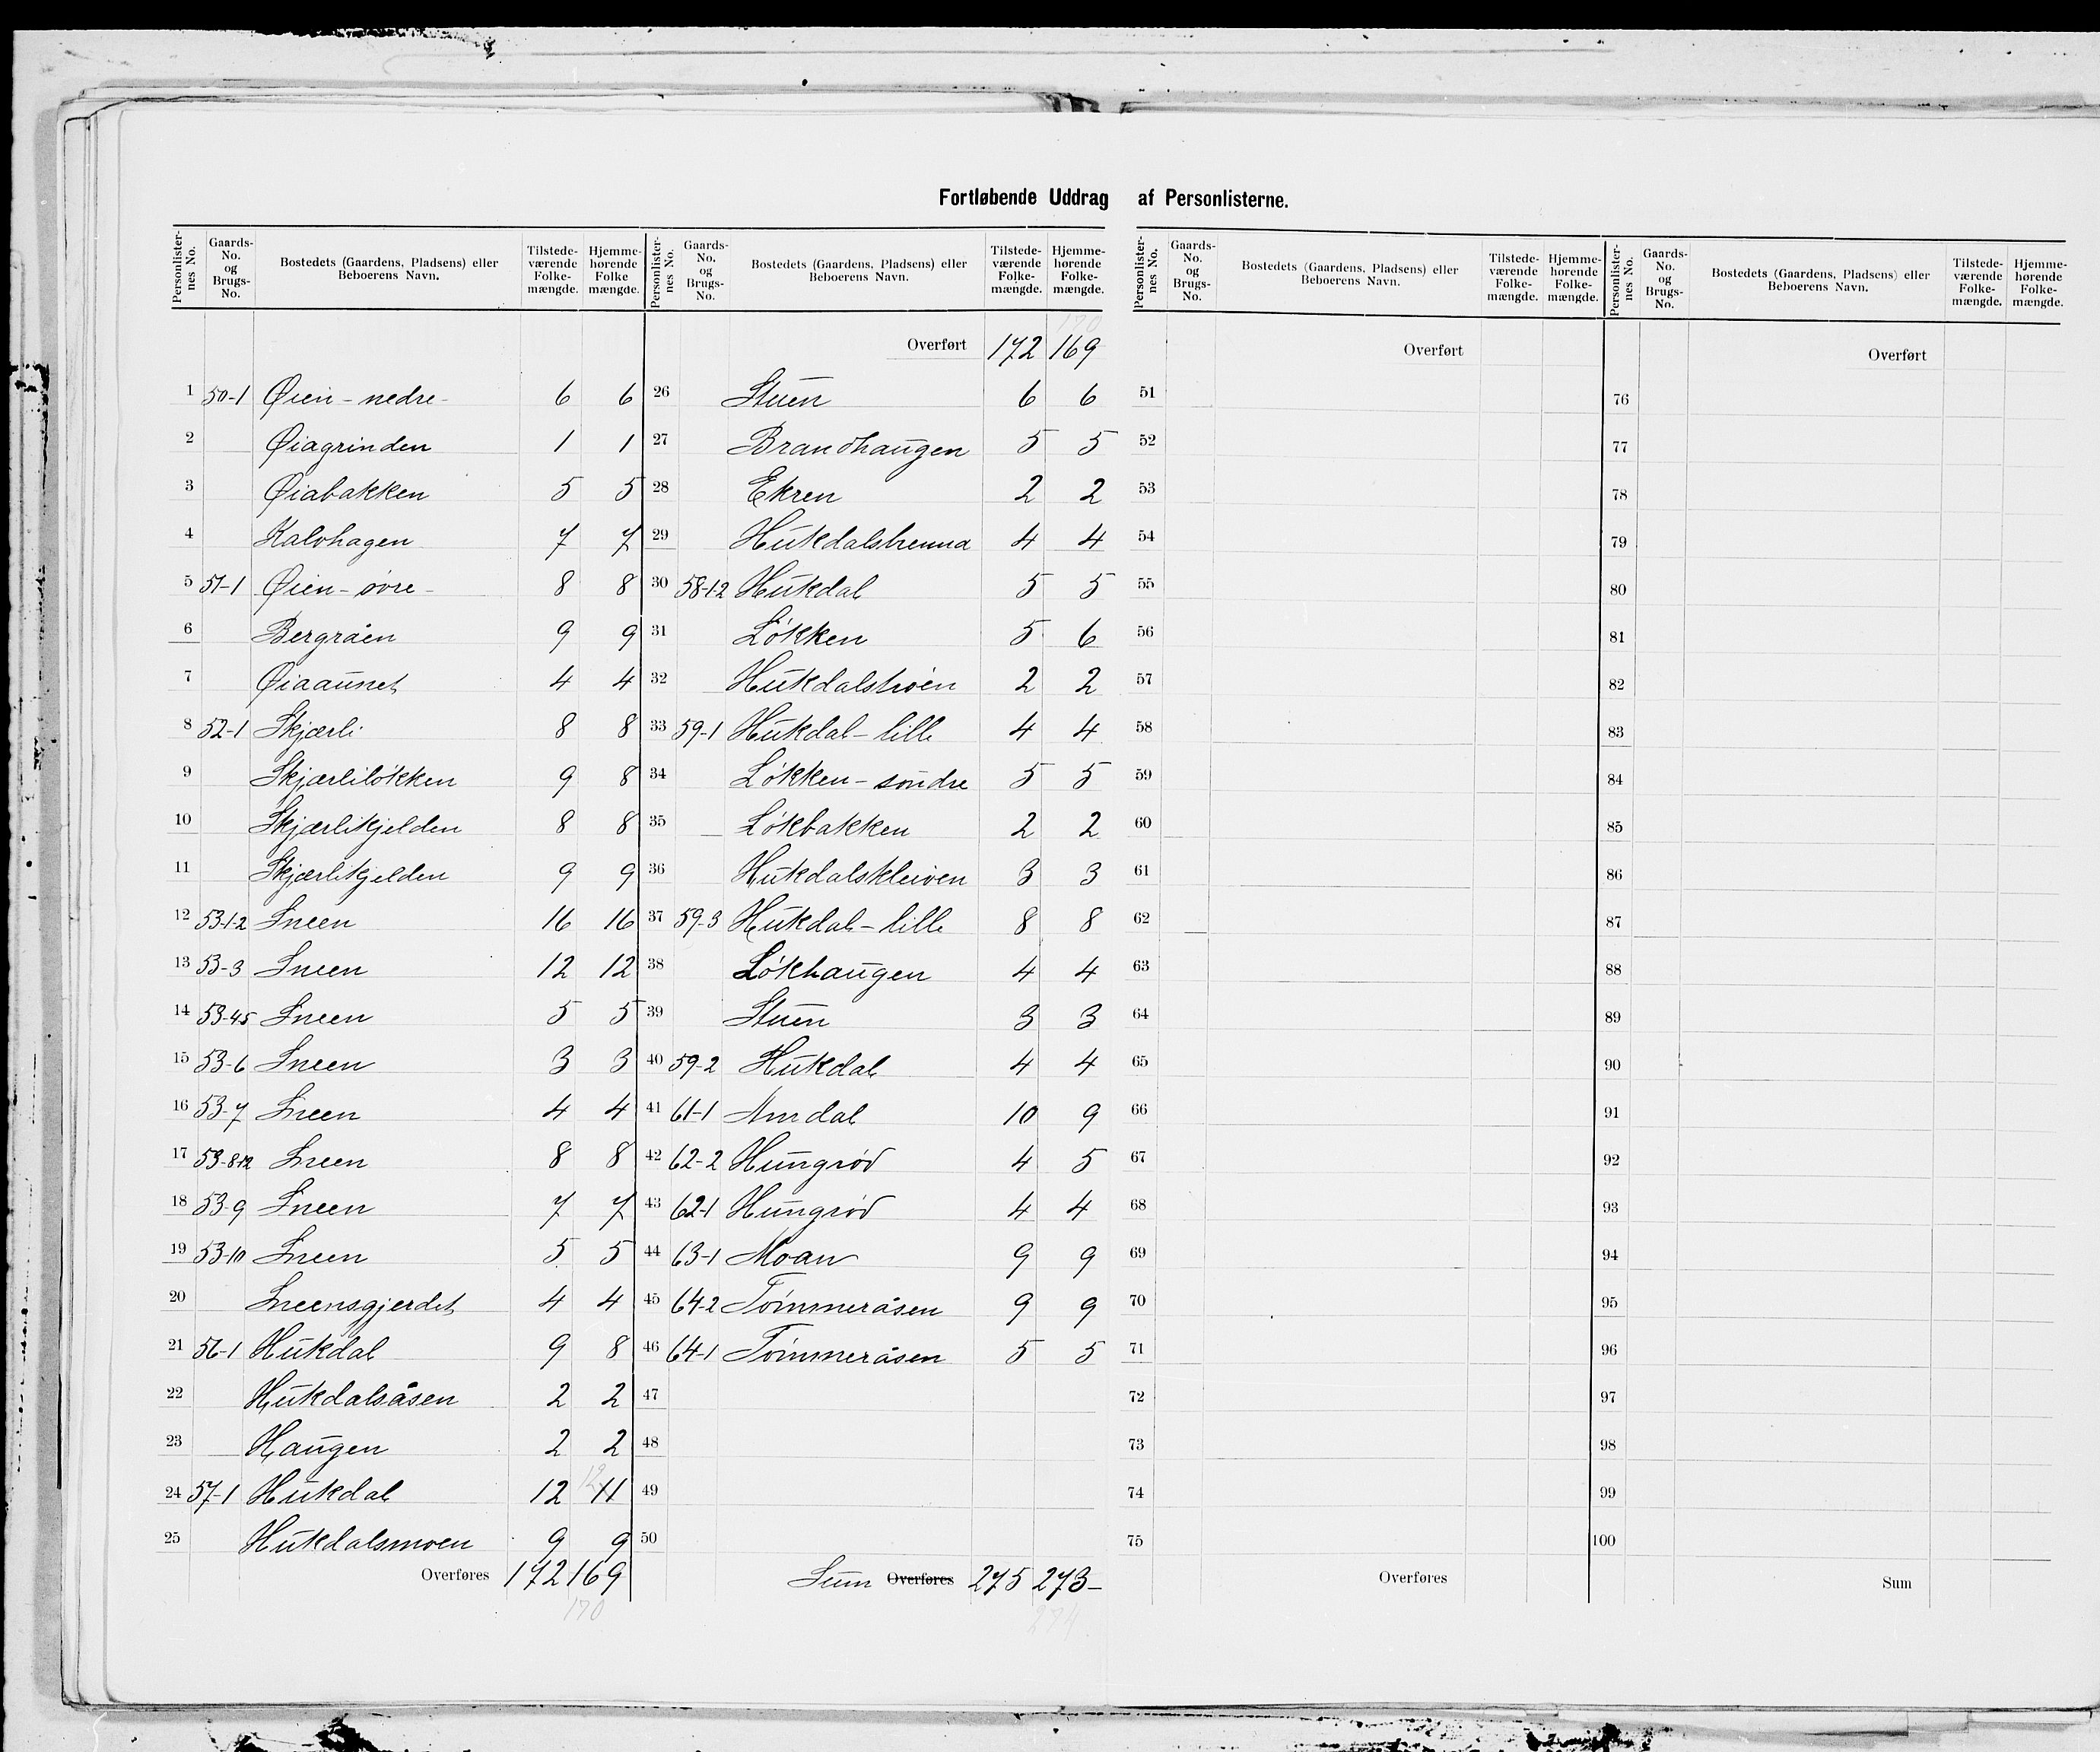 Fortløbende Uddrag af Personlisterne.
Personlisternes No. | Gaards-No. og Brugs-No. | Bostedets (Gaardens, Pladsens) eller Beboerens Navn. | Tilstedeværende Folkemængde. | Hjemmehørende Folkemængde.
1 50-1 Øien - nedre - 6 6
2 Øiagrinden 1 1
3 Øiabakken 5 5
4 Kalvhagen 7 7
5 51-1 Øien - övre - 8 8
6 Bergråen 9 9
7 Øiaaunet 4 4
8 52-1 Skjærli 8 8
9 Skjærliløkken 9 8
10 Skjærlikjelden 8 8
11 Skjærlikjelden 9 9
12 53-1-2 Sneen 16 16
13 53-3 Sneen 12 12
14 53-45 Sneen 5 5
15 53-6 Sneen 3 3
16 53-7 Sneen 4 4
17 53-8-12 Sneen 8 8
18 53-9 Sneen 7 7
19 53-10 Sneen 5 5
20 Sneensgjerdet 4 4
21 56-1 Hukdal 9 8
22 Hukdalsåsen 2 2
23 Haugen 2 2
24 57-1 Hukdal 12 12 11
25 Hukdalsmoen 9 9
Overføres 172 169
170
Personlisternes No. | Gaards-No. og Brugs-No. | Bostedets (Gaardens, Pladsens) eller Beboerens Navn. | Tilstedeværende Folkemængde. | Hjemmehørende Folkemængde.
170
Overført 172 169
26 Stuen 6 6
27 Brandhaugen 5 5
28 Ekren 2 2
29 4 4
30 58-1-2 Hukdal 5 5
31 Løkken 5 6
32 Hukdalstrøen 2 2
33 59-1 Hukdal - lille 4 4
34 Løkken - søndre 5 5
35 Løkbakken 2 2
36 Hukdalskleiven 3 3
37 59-3 Hukdal - lille 8 8
38 Løkhaugen 4 4
39 Stuen 3 3
40 59-2 Hukdal 4 4
41 61-1 Amdal 10 9
42 62-2 Hungrød 4 5
43 62-1 Hungrød 4 4
44 63-1 Moan 9 9
45 64-2 Tømmeråsen 9 9
46 64-1 Tømmeråsen 5 5
47
48
49
50
Sum Overføres 275 273-
274
Personlisternes No. | Gaards-No. og Brugs-No. | Bostedets (Gaardens, Pladsens) eller Beboerens Navn. | Tilstedeværende Folkemængde. | Hjemmehørende Folkemængde.
Overført
51
52
53
54
55
56
57
58
59
60
61
62
63
64
65
66
67
68
69
70
71
72
73
74
75
Overføres
Personlisternes No. | Gaards-No. og Brugs-No. | Bostedets (Gaardens, Pladsens) eller Beboerens Navn. | Tilstedeværende Folkemængde. | Hjemmehørende Folkemængde.
Overført
76
77
78
79
80
81
82
83
84
85
86
87
88
89
90
91
92
93
94
95
96
97
98
99
100
Sum